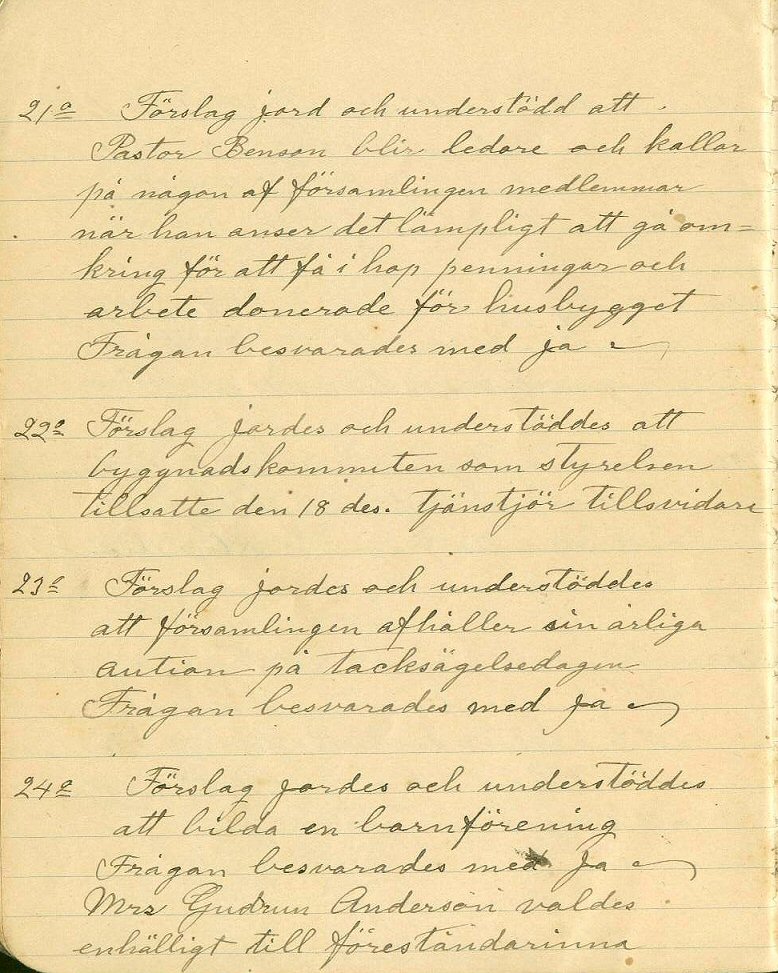 21a Förslag jord och understödd att
Pastor Benson blir ledare och kallar
på någon af församlingen medlemmar
när han anser det lämpligt att gå om=
kring för att få i hop penningar och
arbete donerade för husbygget
Frågan besvarades med ja
22a Förslag jordes och understöddes att
byggnadskommiten som styrelsen
tillsatte den 18 des. tjänstjör tillsvidare
23a Förslag jordes och understöddes
att församlingen afhåller sin årliga
aution på tacksägelsedagen
Frågan besvarades med ja
24e Förslag jordes och understöddes
att bilda en barnförening
Frågan besvarades med Ja
Mrs Gudrun Anderson valdes
enhälligt till föreståndarinna